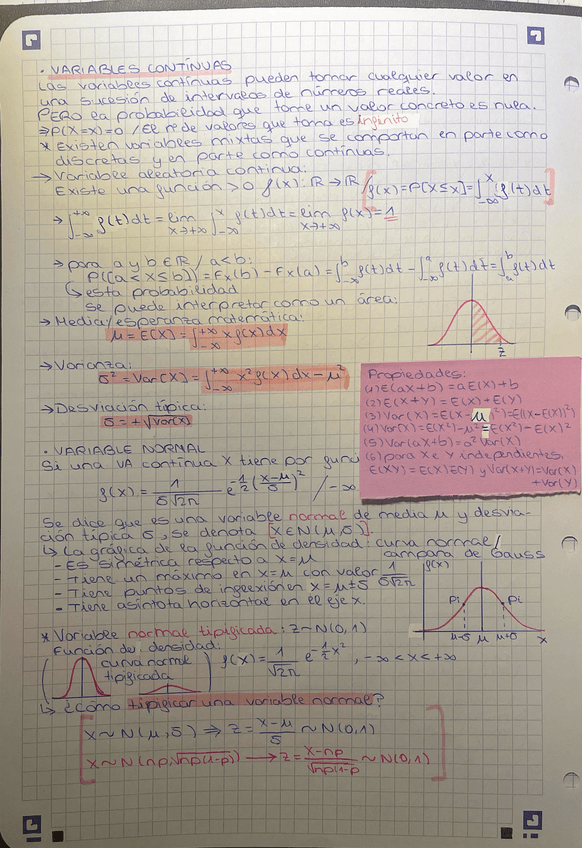 · VARIABLES CONTÍNUAS
Las variables continuas pueden tomar cualquier valor en
una sucesión de intervalos de números reales.
PERO la probabilidad que tome un valor concreto es nula.
⇒ P(X=x)=0 / El nº de valores que toma es infinito
* Existen variables mixtas que se comportan en parte como
discretas y en parte como continuas.
→ Variable aleatoria continua:
Existe una función > 0 f(x): ℝ → ℝ / [f(x) = P[X ≤ x] = ∫_{-∞}^{x} f(t)dt]
→ ∫_{-∞}^{+∞} f(t)dt = lim_{x→+∞} ∫_{-∞}^{x} f(t)dt = lim_{x→+∞} f(x) = 1
→ para a y b ∈ ℝ / a<b:
P((a<X≤b)) = Fx(b) - Fx(a) = ∫_{-∞}^{b} f(t)dt - ∫_{-∞}^{a} f(t)dt = ∫_{a}^{b} f(t)dt
↳ esta probabilidad
se puede interpretar como un área:
z
→ Media/esperanza matemática:
μ = E(X) = ∫_{-∞}^{+∞} x f(x)dx
→ Varianza:
σ² = Var(X) = ∫_{-∞}^{+∞} x² f(x)dx - μ²
→ Desviación típica:
σ = +√Var(X)
Propiedades:
(1) E(aX+b) = aE(X)+b
(2) E(X+Y) = E(X)+E(Y)
(3) Var(X) = E(X-μ²) = E((X-E(X))²)
(4) Var(X) = E(X²)-μ² = E(X²)-E(X)²
(5) Var(aX+b) = a² Var(X)
(6) para X e Y independientes,
E(XY) = E(X)E(Y) y Var(X+Y) = Var(X)
+Var(Y)
· VARIABLE NORMAL
Si una VA continua X tiene por func
f(x) = 1/(σ√2π) e^{-1/2((x-μ)/σ)²} / -∞
Se dice que es una variable normal de media μ y desvia-
ción típica σ, se denota [X∈N(μ,σ)].
↳ La gráfica de la función de densidad: curva normal/
campana de Gauss
- Es simétrica respecto a x=μ
- Tiene un máximo en x=μ con valor 1/(σ√2π)
- Tiene puntos de inflexión en x=μ±σ
- Tiene asíntota horizontal en el eje x.
f(x)
Pi Pi
μ-σ μ μ+σ x
* Variable normal tipificada: Z~N(0,1)
Función de densidad:
curva normal
tipificada
f(x) = 1/√2π e^{-1/2 x²}, -∞<x<+∞
↳ ¿Cómo tipificar una variable normal?
X~N(μ,σ) ⇒ Z = (X-μ)/σ ~ N(0,1)
X~N(np,√np(1-p)) → Z = (X-np)/√np(1-p) ~ N(0,1)